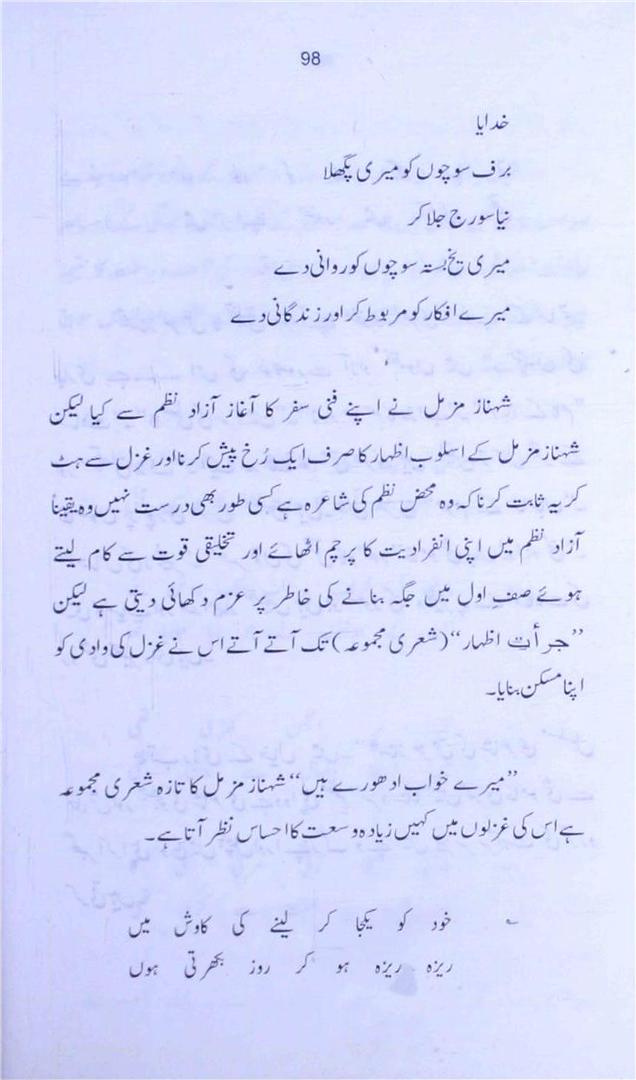 98
خدایا
برف سوچوں کو میری پگھلا
نیا سورج جلا کر
میری یخ بستہ سوچوں کو روانی دے
میرے افکار کو مربوط کر اور زندگانی دے
شہناز مزمل نے اپنے فنی سفر کا آغاز آزاد نظم سے کیا لیکن
شہناز مزمل کے اسلوب اظہار کا صرف ایک رُخ پیش کرنا اور غزل سے ہٹ
کر یہ ثابت کرنا کہ وہ محض نظم کی شاعرہ ہے کسی طور بھی درست نہیں وہ یقینا
آزاد نظم میں اپنی انفرادیت کا پرچم اٹھائے اور تخلیقی قوت سے کام لیتے
ہوئے صفِ اول میں جگہ بنانے کی خاطر پر عزم دکھائی دیتی ہے لیکن
”جرأت اظہار“ (شعری مجموعہ) تک آتے آتے اس نے غزل کی وادی کو
اپنا مسکن بنایا۔
”میرے خواب ادھورے ہیں“ شہناز مزمل کا تازہ شعری مجموعہ
ہے اس کی غزلوں میں کہیں زیادہ وسعت کا احساس نظر آتا ہے۔
؎ خود کو یکجا کر لینے کی کاوش میں
ریزہ ریزہ ہو کر روز بکھرتی ہوں